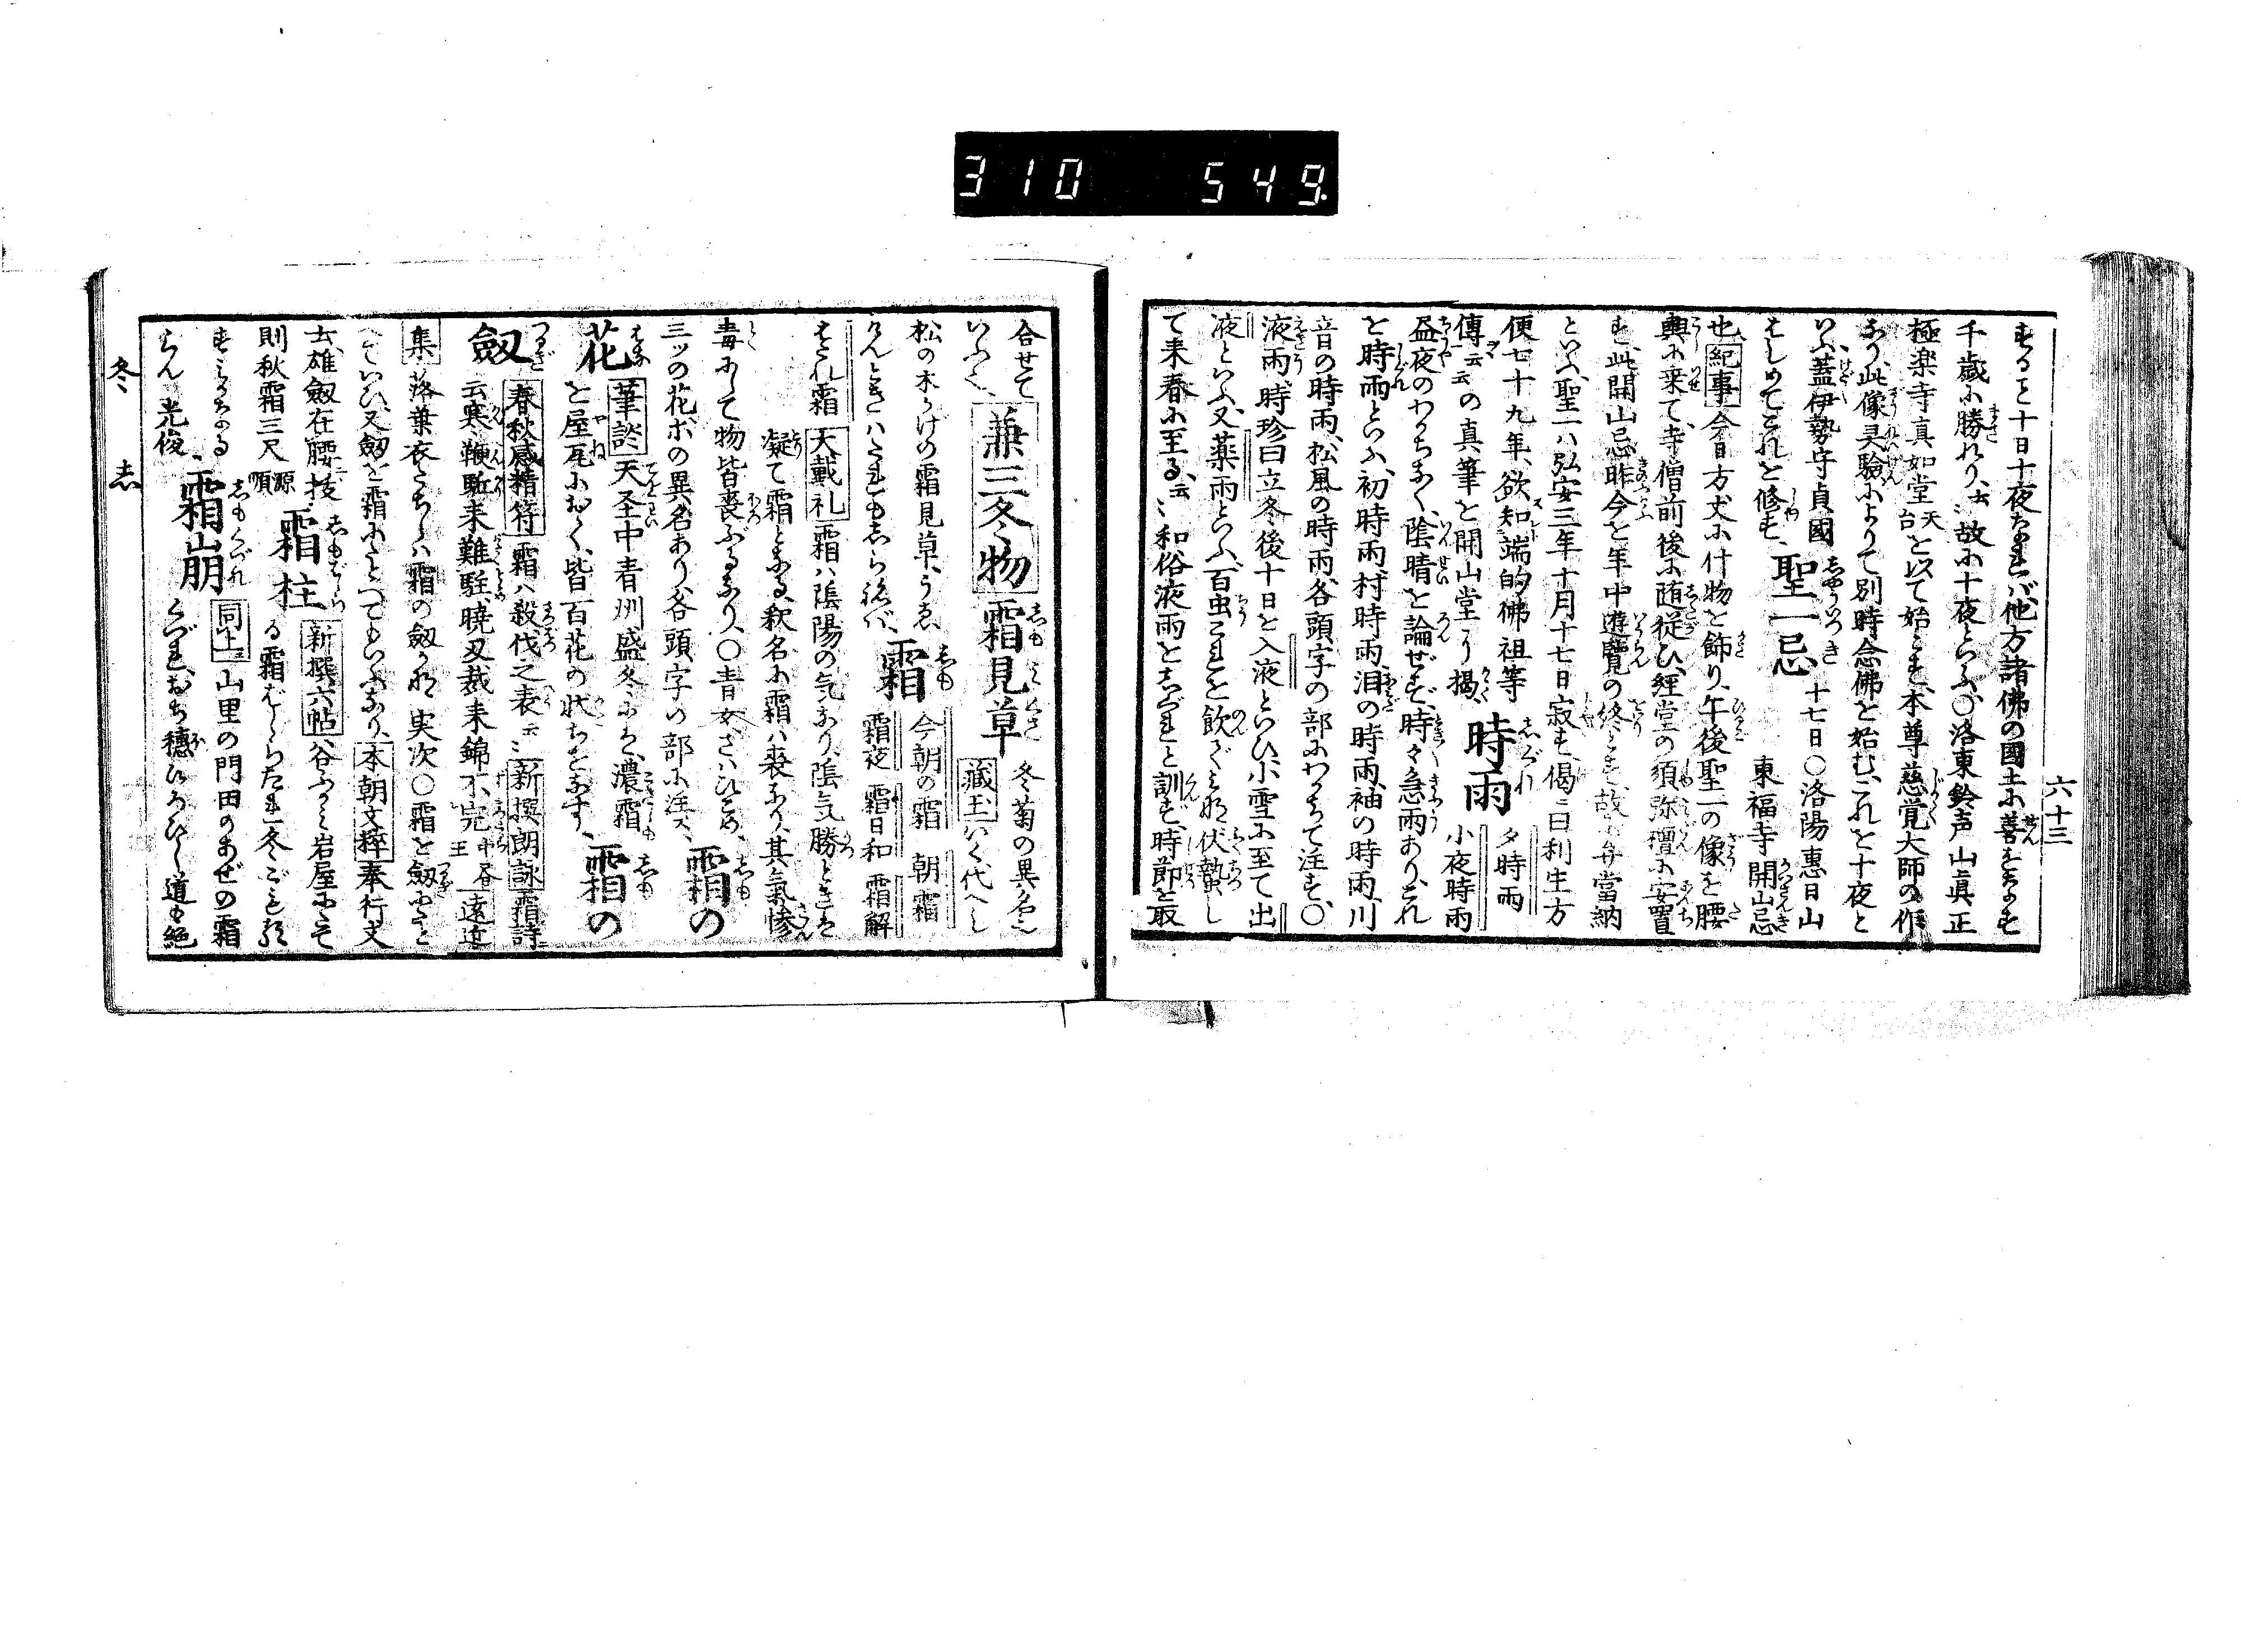 310 549
六十三
すること十日十夜すれバ他方諸佛の國土に善をなす
千歳に勝れり、云々故に十夜といふ、〇洛東鈴声山眞正
極楽寺真如堂天台を以て始とす、本尊慈覚大師の作
なり、此像灵驗によりて別時念佛を始む、これを十夜と
いふ、蓋伊勢守貞國
はじめてこれを修す、聖一忌 十七日〇洛陽惠日山東福寺開山忌
也、紀事今日方丈に什物を飾り、午後聖一の像を腰
輿に乗て、寺僧前後に随従ひ、經堂の須弥壇に安置
す、此開山忌昨今を年中遊覽の終とす、故
といふ、聖一ハ弘安三年十月十七日寂す偈ニ曰利生方
便七十九年、欲知端的佛祖等
傳云云の真筆を開山堂に掲く、時雨 夕時雨 小夜時雨
昼夜のわかちなく、陰晴を論ぜず、時々急雨あり、これ
を時雨といふ、初時雨、村時雨、泪の時雨、袖の時雨、川
音の時雨、松風の時雨、各頭字の部にわかちて注す、〇
液雨、時珍曰立冬後十日を入液といひ、小雪に至て出
液といふ、又藥雨といふ、百虫これを飲て伏蟄し
て来春に至る、云々和俗液雨をしぐれと訓ず、時節を取
合せて
いふ也、兼三冬物 霜見草 冬菊の異名也 藏玉いく代へし
松の木かげの霜見草、うゑ
けんときハたれもしらねバ、霜 今朝の霜 朝霜 霜夜 霜日和 霜解
はだれ霜 大戴礼 霜ハ陰陽の気なり、陰気勝ときは
凝て霜となる、釈名に霜ハ喪なり、其氣惨
毒にして物皆喪ぶるなり、〇青女、さハひこめ、
三ッの花、ホの異名あり、各頭字の部に注ス、霜の
花 筆談 天圣中青州盛冬に、濃霜
と屋瓦におく、皆百花の状ちをなす、霜の
劔 春秋感精符 霜ハ殺伐之表云々新撰朗詠 霜詩ニ
云寒鞭駈来難駐曉、刄裁来錦不完
集 落葉衣たちしハ霜の劔かな 実次〇霜を劔にたと
へていひ、又劔を霜にたとへてもいふなり、本朝文粹 奉行文
云、雄劔在腰、抜
則秋霜三尺 源順 霜柱 新撰六帖 谷ふかミ岩屋にたて
る霜ばしらたれ冬ごもる
すミかなるらん 霜崩 同上 山里の門田のあぜの霜
くづれおち穗ひろひし道も絶
らん 光俊
冬
志